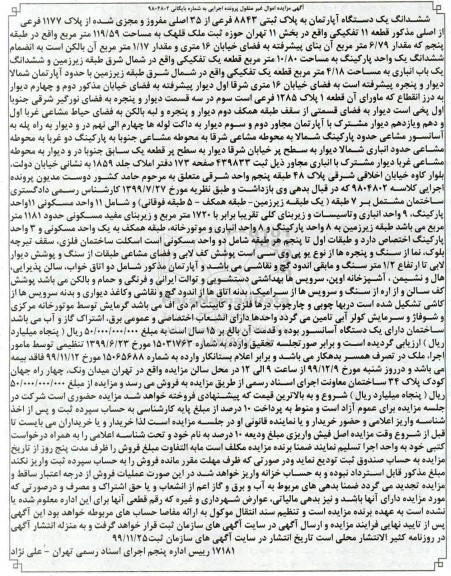 آگهی مزایده اموال غیر منقول پرونده اجرایی به شماره بایگانی ۹۸۰۴۸۰۲
ششدانگ یک دستگاه آپارتمان به پلاک ثبتی ۸۸۴۳ فرعی از ۳۵ اصلی مفروز و مجزی شده از پلاک ۱۱۷۷ فرعی
از اصلی مذکور قطعه ۱۱ تفکیکی واقع در بخش ۱۱ تهران حوزه ثبت ملک قلهک به مساحت ۱۱۹/۵۹ متر مربع واقع در طبقه
پنجم که مقدار ۶/۷۹ متر مربع آن بنای پیشرفته به فضای خیابان ۱۶ متری و مقدار ۱/۱۷ متر مربع آن بالکن است به انضمام
ششدانگ یک واحد پارکینگ به مساحت ۱۰/۸۰ متر مربع قطعه یک تفکیکی واقع در شمال شرق طبقه زیرزمین و ششدانگ
یک باب انباری به مساحت ۴/۱۸ متر مربع قطعه یک تفکیکی واقع در شمال شرق طبقه زیرزمین با حدود آپارتمان شمالا
دیوار و پنجره پیشرفته است به فضای خیابان ۱۶ متری شرقا اول دیوار پیشرفته به فضای خیابان مذکور دوم و چهارم دیوار
به درز انقطاع که ماورای آن قطعه ۱ پلاک ۱۲۸۵ فرعی است سوم در سه قسمت دیوار و پنجره به فضای نورگیر شرقی جنوبا
اول پخی است دیوار به فضای قسمتی از سقف طبقه همکف دوم دیوار و پنجره و لبه بالکن به فضای حیاط مشاعی غربا اول
و دهم ویازدهم دیوار مشترک با آپارتمان مجاور دوم و سوم دیوار به داکت لوله ها چهارم الی نهم در و دیوار به راه پله به
آسانسور مشاعی حدود پارکینگ شمالا به محوطه مشاعی شرقا به محوطه مشاعی جنوبا به پارکینگ و غربا به محوطه
مشاعی حدود انباری شمالا دیوار به سطح پر خیابان شرقا دیوار به سطح پر قطعه یک سابق جنوبا در و دیوار به محوطه
مشاعی غربا دیوار مشترک با انباری مجاور ذیل ثبت ۴۳۹۸۳۳ صفحه ۱۷۳ دفتر املاک جلد ۱۸۵۹ به نشانی خیابان دولت،
بلوار کاوه خیابان اخلاقی شرقی پلاک ۴۸ طبقه پنجم واحد شرقی متعلق به مرحوم حامد کشور دوست مدیون پرونده
اجرایی کلاسه ۹۸۰۴۸۰۲ که در قبال بدهی وی بازداشت و طبق نظریه مورخ ۱۳۹۹/۷/۲۷ کارشناس رسمی دادگستری
ساختمان مشتمل بر ۷ طبقه ( یک طبقه زیرزمین- طبقه همکف - ۵ طبقه فوقانی) و شامل ۱۱ واحد مسکونی ۱۱واحد
پارکینگ، ۹ واحد انباری و تاسیسات و زیربنای کلی تقریبا برابر با ۱۷۲۰ متر مربع و زیربنای مفید مسکونی حدود ۱۱۸۱ متر
مربع می باشد طبقه زیرزمین به ۸ واحد پارکینگ و ۸ واحد انباری و موتورخانه، طبقه همکف به یک واحد مسکونی و ۳ واحد
پارکینگ اختصاص دارد و طبقات اول تا پنجم هر طبقه شامل دو واحد مسکونی است اسکلت ساختمان فلزی، سقف تیرچه
بلوک، نما از سنگ و پنجره ها از نوع یو پی وی سی است پوشش کف لابی و فضای مشاعی طبقات از سنگ و پوشش دیوار
لابی تا ارتفاع ۱/۲ متر سنگ و مابقی اندود گچ و نقاشی می باشد و آپارتمان مذکور شامل دو اتاق خواب، سالن پذیرایی،
هال و نشیمن، آشپزخانه اوپن، سرویس ها بهداشتی دستشویی و توالت ایرانی و فرنگی و حمام و بالکن می باشد پوشش
کف سالن و از اره از سنگ و سرویس ها از سرامیک، بدنه اتاق ها از اندود گچ و نقاشی و کاغذ دیواری و بدنه سرویس ها از
کاشی تشکیل شده است دربها چوبی و چارچوب دربها فلزی و کابینت ام دی اف می باشد گرمایش توسط موتورخانه مرکزی
و شوفاژ و سرمایش کولر آبی تامین می گردد واحدها دارای انشعاب اختصاصی و عمومی برق، اشتراک گاز و آب می باشد
ساختمان دارای یک دستگاه آسانسور بوده و قدمت آن بالغ بر ۱۵ سال است به مبلغ ۵۰/۰۰۰/۰۰۰/۰۰۰ ریال ( پنجاه میلیارد
ریال ) ارزیابی گردیده است و برابر صورتجلسه تحقیق وارده به شماره ۱۵۰۳۱۷۶۳ مورخ ۱۳۹۹/۶/۲۳ تنظیمی توسط مامور
اجرا، ملک در تصرف همسر بدهکار می باشد و برابر اعلام بستانکار وارده به شماره ۱۵۰۶۵۶۸۸ مورخ ۹۹/۱۱/۱۲ فاقد بیمه
می باشد و درروز شنبه مورخ ۹۹/۱۲/۹ از ساعت ۹ الی ۱۲ در محل سالن مزایده واقع در تهران میدان ونک، چهار راه جهان
کودک پلاک ۳۴ ساختمان معاونت اجرای اسناد رسمی از طریق مزایده به فروش می رسد و مزایده از مبلغ ۵۰/۰۰۰/۰۰۰/۰۰۰
ریال ( پنجاه میلیارد ریال ) شروع و به بالاترین قیمت که پیشنهادی فروخته خواهد شد مزایده حضوری است شرکت در
جلسه مزایده برای عموم آزاد است و منوط به پرداخت ۱۰ درصد از مبلغ پایه کارشناسی به حساب سپرده ثبت و پس از اخذ
شناسه واریز اعلامی و حضور خریدار و یا نماینده قانونی او در جلسه مزایده است لذا خریدار و یا خریداران می بایست تا
قبل از شروع وقت مزایده اصل فیش واریزی مبلغ ودیعه ۱۰ درصد به نام خود و تحت شناسه اعلامی را به همراه درخواست
کتبی خود به واحد اجرا تسلیم نمایند ضمنا برنده مزایده مکلف است مابه التفاوت مبلغ فروش را ظرف مدت پنج روز از تاریخ
مزایده به حساب صندوق ثبت تودیع نماید ودر صورتی که ظرف مهلت مقرر مانده فروش را به حساب سپرده ثبت واریز نکند
مبلغ مذکور قابل استرداد نبوده و به حساب خزانه واریز خواهد شد در این صورت عملیات فروش از درجه اعتبار ساقط و
مزایده تجدید می گردد ضمنا بدهی های مربوط به آب و برق و گاز اعم از انشعاب و یا حق اشتراک و مصرف و درصورتی که
مورد مزایده دارای آنها باشد و نیز بدهی مالیاتی، عوارض شهرداری و غیره که رقم قطعی آنها برای این اداره معلوم شده یا
نشده است به عهده برنده مزایده است و تنظیم سند انتقال موکول به ارائه مفاصا حساب های مربوطه خواهد بود این آگهی
پس از تایید نهایی فرایند مزایده و ارسال آگهی در سایت آگهی های سازمان ثبت قرار خواهد گرفت و به منزله انتشار آگهی
در روزنامه کثیر الانتشار محلی است تاریخ انتشار در سایت آگهی های سازمان ثبت۹۹/۱۱/۲۵
۱۷۱۸۱ رییس اداره پنجم اجرای اسناد رسمی تهران - علی نژاد